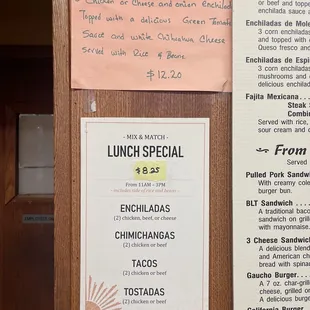 Chicken or Cheese and onion Enchilad
Topped with a delicious Green Tomato
Sauce and white Chihuahua Cheese
Served with Rice & Beans
$12.20
- MIX & MATCH -
LUNCH SPECIAL
$8.25
From 11AM - 3PM
- Includes side of rice and beans -
ENCHILADAS
(2) chicken, beef, or cheese
CHIMICHANGAS
(2) chicken or beef
TACOS
(2) chicken or beef
TOSTADAS
(2) chicken or beef
or beef and toppe
enchilada sauce a
Enchiladas de Mole
3 corn enchiladas
and topped with o
Queso fresco and
Enchiladas de Espi
3 corn enchiladas
mushrooms and
delicious enchilad
Fajita Mexicana
Steak
Combin
Served with rice,
sour cream and
From
Served
Pulled Pork Sandwi
With creamy cole
burger bun.
BLT Sandwich
A traditional baco
sandwich on grill
with mayonnaise.
3 Cheese Sandwich
A delicious blend
and American ch
bread with spina
Gaucho Burger
A 7 oz. char-grill
cheese, grilled or
A delicious burge
California Burger